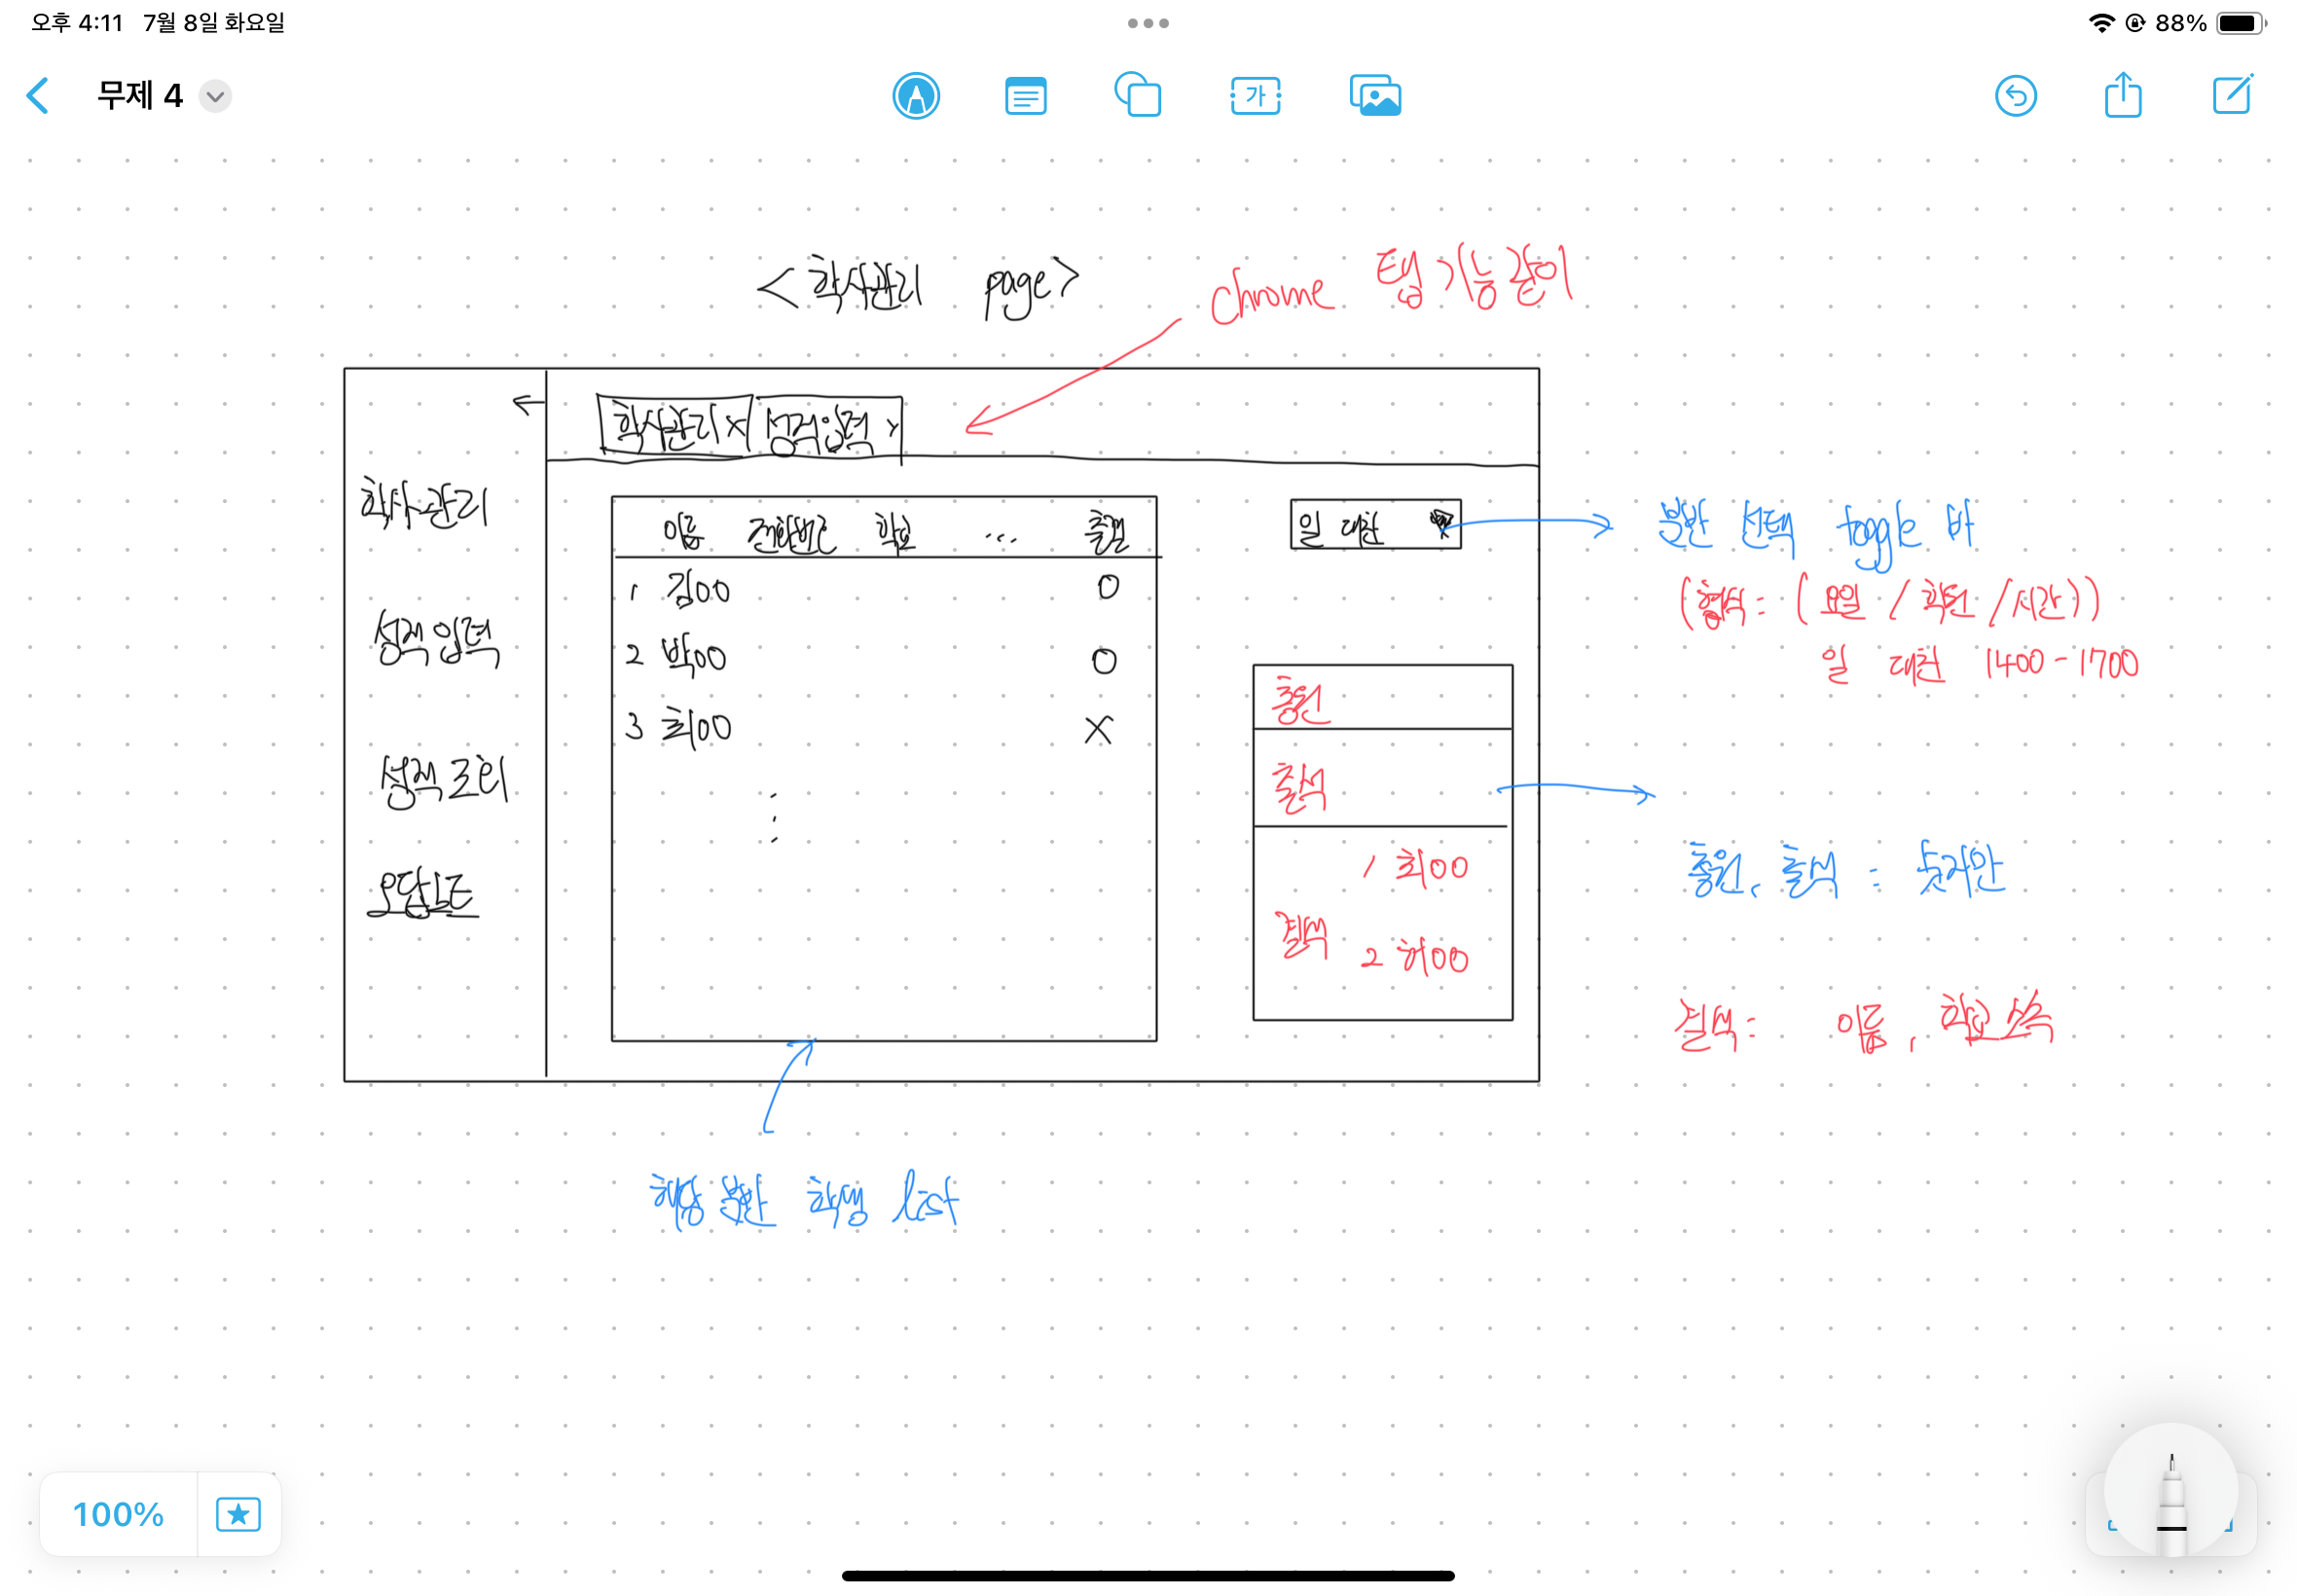 오후 4:11 7월 8일 화요일
88%
무제 4
가
<학사관리 page>
chrome 탭 기능 같이
학사관리 X 성적입력 X
학사관리
성적입력
성적 관리
오답노트
이름 전화번호 학교 ... 출결
1 김00 O
2 박00 O
3 최00 X
일 대찬
분반 선택 toggle 바
(형식: (요일 / 학원 / 시간))
일 대찬 1400-1700
총원
출석
결석
1 최00
2 허00
총원, 출석 : 숫자만
결석: 이름, 학교 소속
해당 분반 학생 list
100%